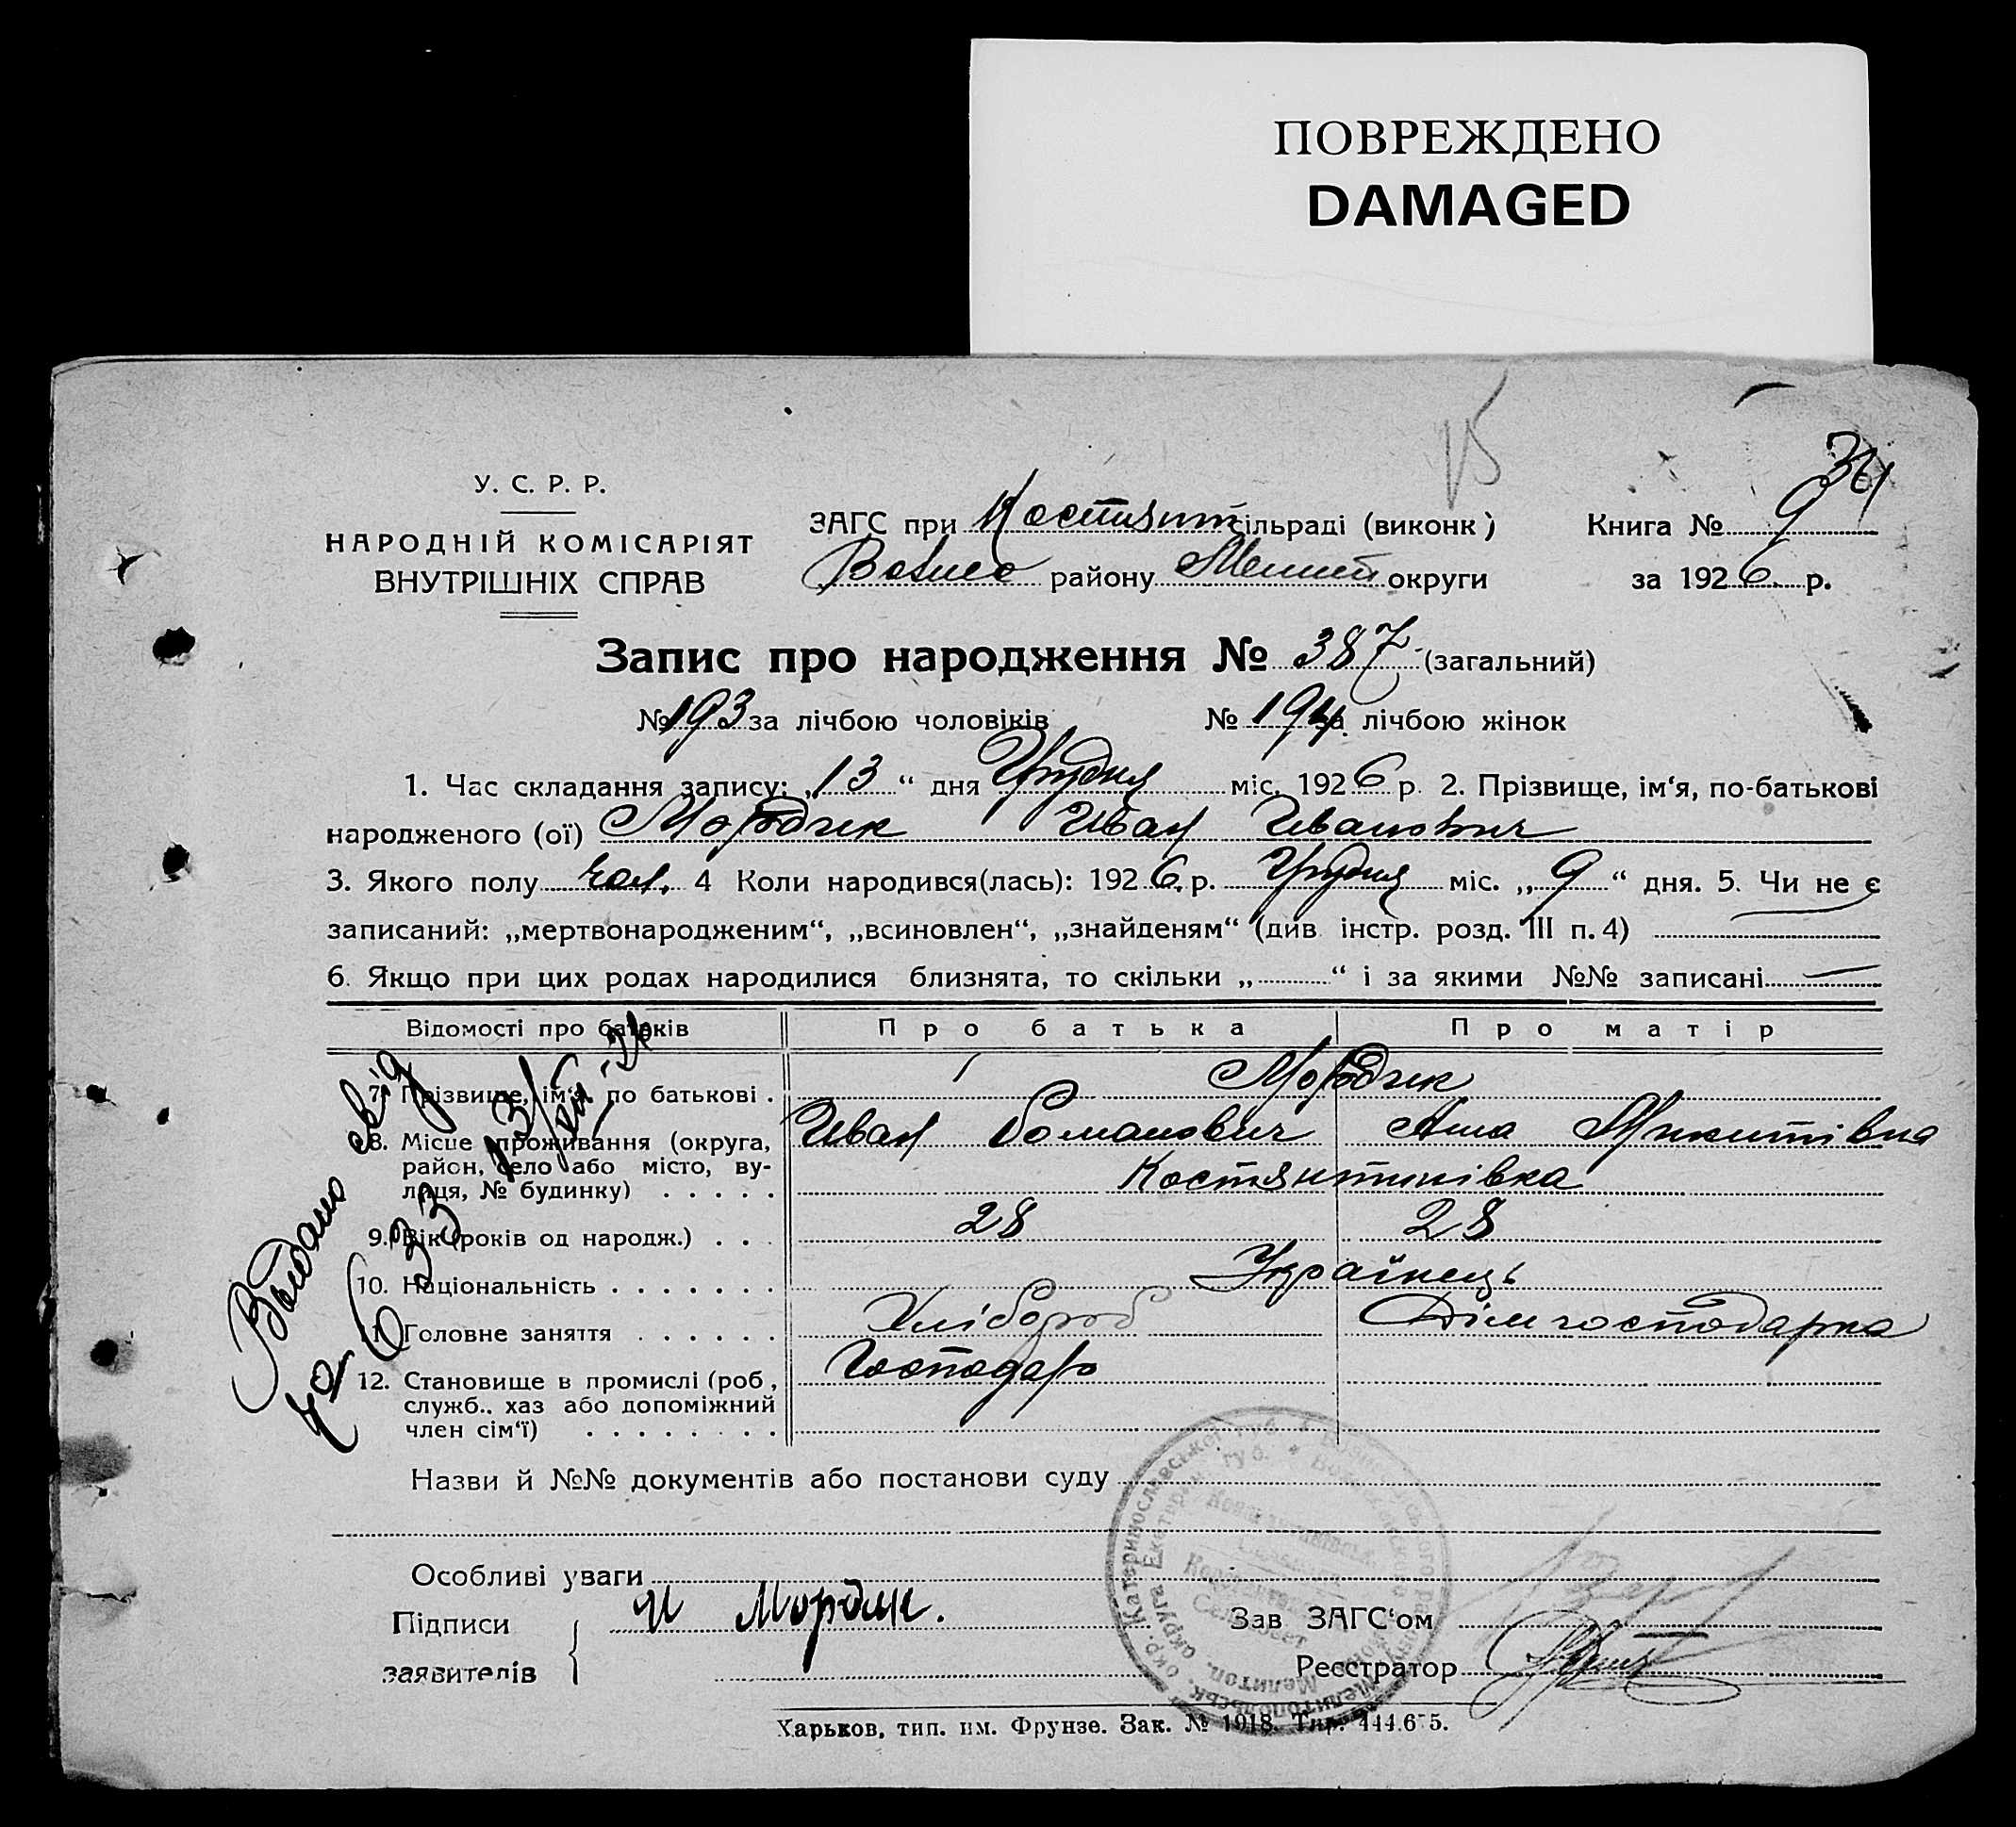 ПОВРЕЖДЕНО
DAMAGED
15
34
У. С. Р. Р.
НАРОДНІЙ КОМІСАРІЯТ
ВНУТРІШНІХ СПРАВ
ЗАГС при Костянт сільраді (виконк)
району округи
Книга № 9
за 1926 р.
Запис про народження № 387 (загальний)
№ 193 за лічбою чоловіків № 194 за лічбою жінок
1. Час складання запису: „13“ дня Грудня міс. 1926 р. 2. Прізвище, ім‘я, по-батькові
народженого (ої) Иван Иванович
3. Якого полу чол. 4 Коли народився(лась): 1926. р. Грудня міс. „9“ дня. 5. Чи не є
записаний: „мертвонародженим“, „всиновлен“, „знайденям“ (див. інстр. розд. III п. 4)
6. Якщо при цих родах народилися близнята, то скільки „ “ і за якими №№ записані —
Відомості про батьків Про батька Про матір
7. Прізвище, ім‘я, по батькові .
Иван Романович Анна Микитівна
8. Місце проживання (округа,
район, село або місто, ву-
лиця, № будинку) . . . . . Костянтинівка
9. Вік (років од народж.) . . . 28 28
10. Національність . . . . . . . Українець
11. Головне заняття . . . . . . Хлібороб Дімгосподарка
12. Становище в промислі (роб., Господарь
служб., хаз або допоміжний
член сім‘ї) . . . . . . . .
Назви й №№ документів або постанови суду
Особливі уваги
Підписи
заявителів
Зав ЗАГС‘ом
Реєстратор
Харьков, тип. им. Фрунзе. Зак. № 1918. Тир. 444.675.